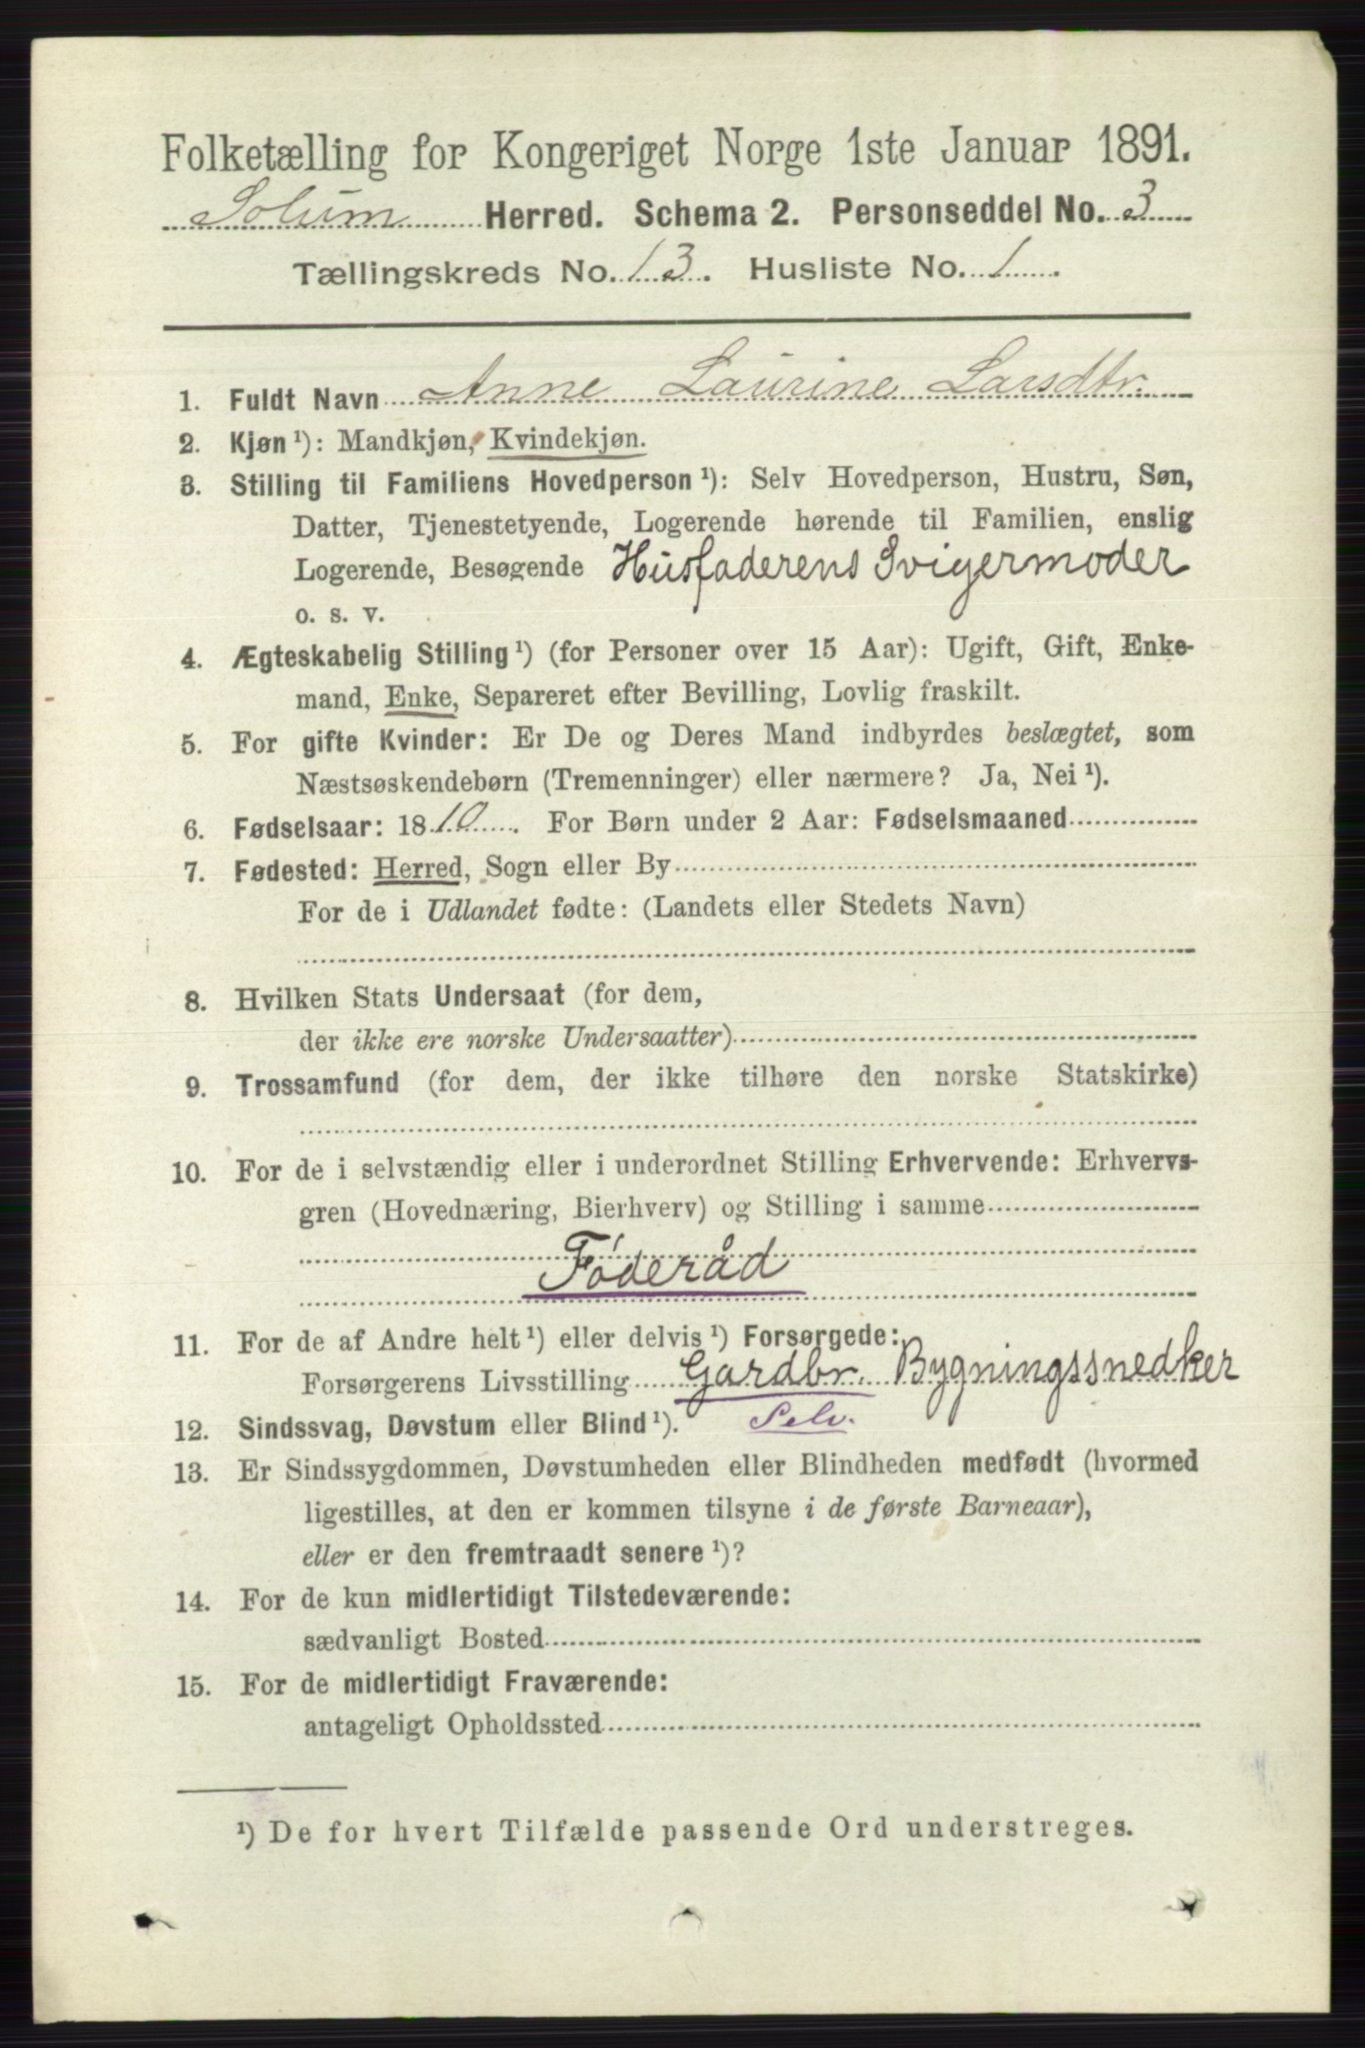 Folketælling for Kongeriget Norge 1ste Januar 1891.
Solum Herred. Schema 2. Personseddel No. 3
Tællingskreds No. 13. Husliste No. 1
1. Fuldt Navn Anne Laurine Larsdtr.
2. Kjøn ¹): Mandkjøn, Kvindekjøn.
3. Stilling til Familiens Hovedperson ¹): Selv Hovedperson, Hustru, Søn,
Datter, Tjenestetyende, Logerende hørende til Familien, enslig
Logerende, Besøgende Husfaderens Svigermoder
o. s. v.
4. Ægteskabelig Stilling ¹) (for Personer over 15 Aar): Ugift, Gift, Enke-
mand, Enke, Separeret efter Bevilling, Lovlig fraskilt.
5. For gifte Kvinder: Er De og Deres Mand indbyrdes beslægtet, som
Næstsøskendebørn (Tremenninger) eller nærmere? Ja, Nei ¹).
6. Fødselsaar: 1810. For Børn under 2 Aar: Fødselsmaaned
7. Fødested: Herred, Sogn eller By
For de i Udlandet fødte: (Landets eller Stedets Navn)
8. Hvilken Stats Undersaat (for dem,
der ikke ere norske Undersaatter)
9. Trossamfund (for dem, der ikke tilhøre den norske Statskirke)
10. For de i selvstændig eller i underordnet Stilling Erhvervende: Erhvervs-
gren (Hovednæring, Bierhverv) og Stilling i samme
Føderåd
11. For de af Andre helt ¹) eller delvis ¹) Forsørgede:
Forsørgerens Livsstilling Gardbr. Bygningssnedker
12. Sindssvag, Døvstum eller Blind ¹). Selv.
13. Er Sindssygdommen, Døvstumheden eller Blindheden medfødt (hvormed
ligestilles, at den er kommen tilsyne i de første Barneaar),
eller er den fremtraadt senere ¹)?
14. For de kun midlertidigt Tilstedeværende:
sædvanligt Bosted
15. For de midlertidigt Fraværende:
antageligt Opholdssted
¹) De for hvert Tilfælde passende Ord understreges.